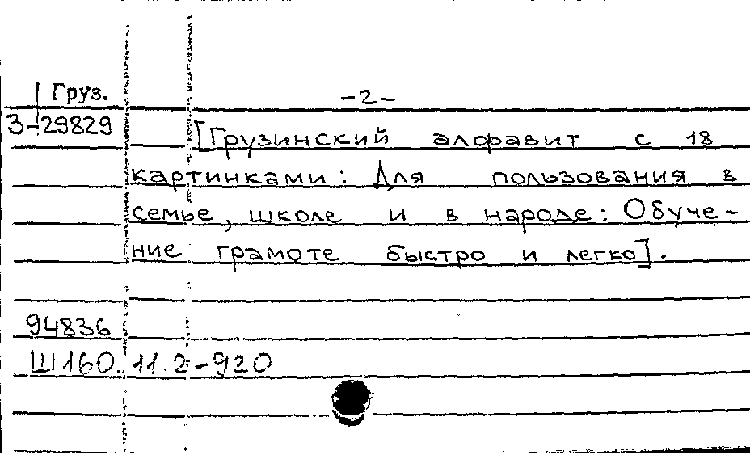 Груз. -2-
3-29829 [Грузинский алфавит с 18
картинками: Для пользования в
семье, школе и в народе: Обуче-
ние грамоте быстро и легко].
94836
Ш160.11.2-920